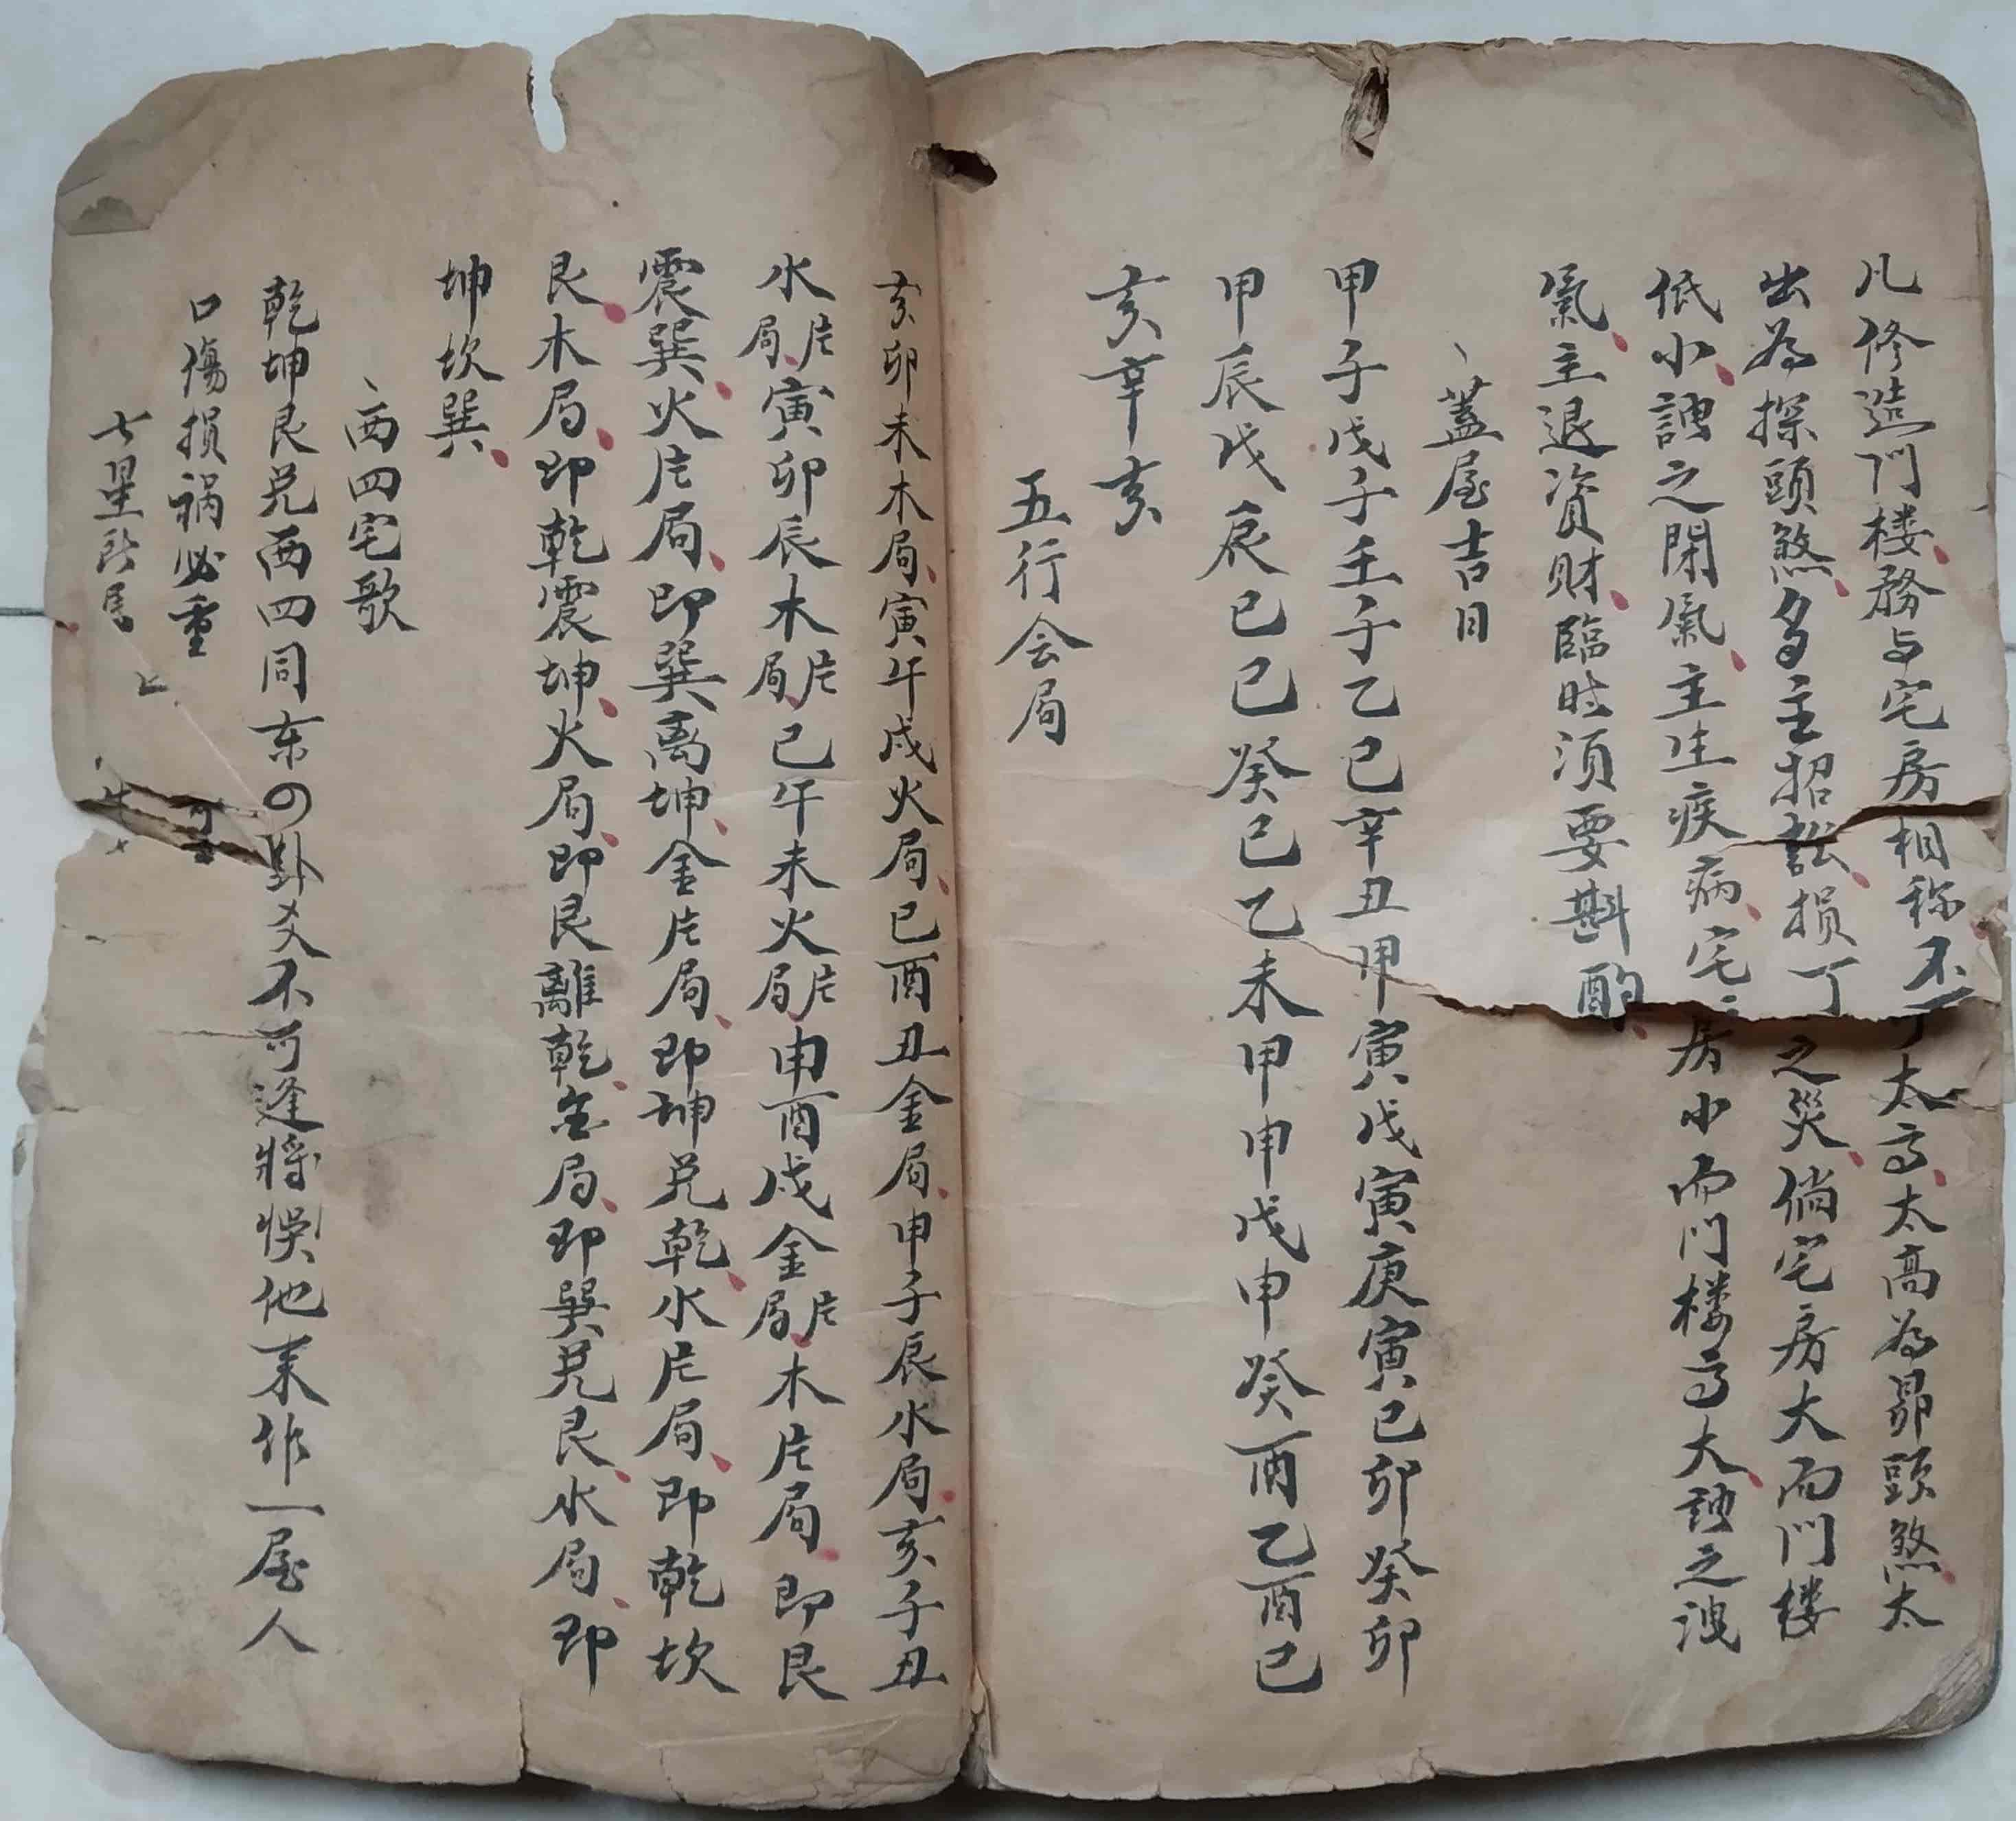 凡修造门楼务与宅房相称不可太高太高为昴頭煞太
出为探頭煞多主招訟损丁之災倘宅房大而门楼
低小謂之閉氣主生疾病宅房小而门楼高大謂之洩
氣主退资财臨时须要斟酌
蓋屋吉日
甲子戊子壬子乙巳辛丑甲寅戊寅庚寅己卯癸卯
甲辰戊辰己巳癸巳乙未甲申戊申癸酉乙酉己
亥辛亥
五行会局
亥卯未木局寅午戌火局巳酉丑金局申子辰水局亥子丑
水片局寅卯辰木片局巳午未火片局申酉戌金片局木片局即艮
震巽火片局即巽离坤金片局即坤兑乾水片局即乾坎
艮木局即乾震坤火局即艮離乾金局即巽兑艮水局即
坤坎巽
西四宅歌
乾坤艮兑西四同东四卦爻不可逢將悮他来作一屋人
口傷损祸必重
七星